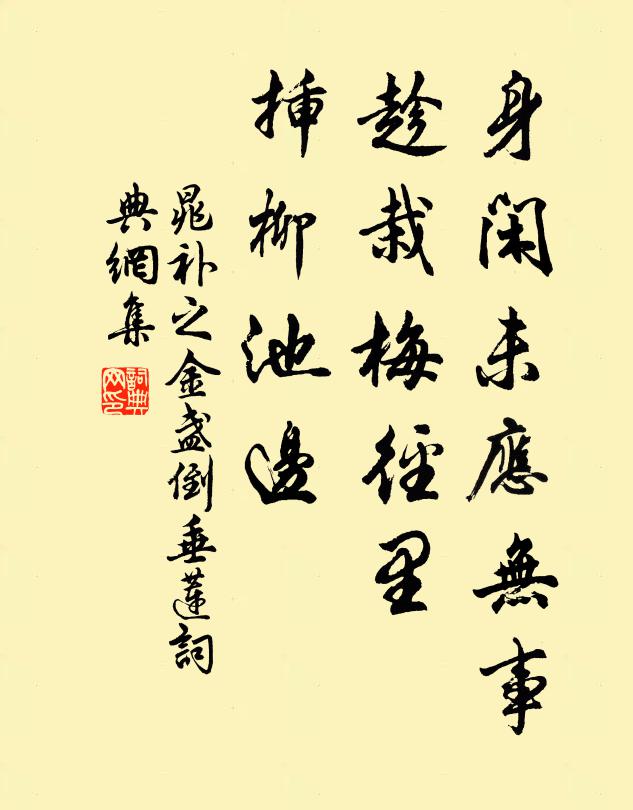 身閑未應無事
趁栽梅徑里
揷柳池邊
晁補之金盞倒垂蓮詞
典網集
詞典網印